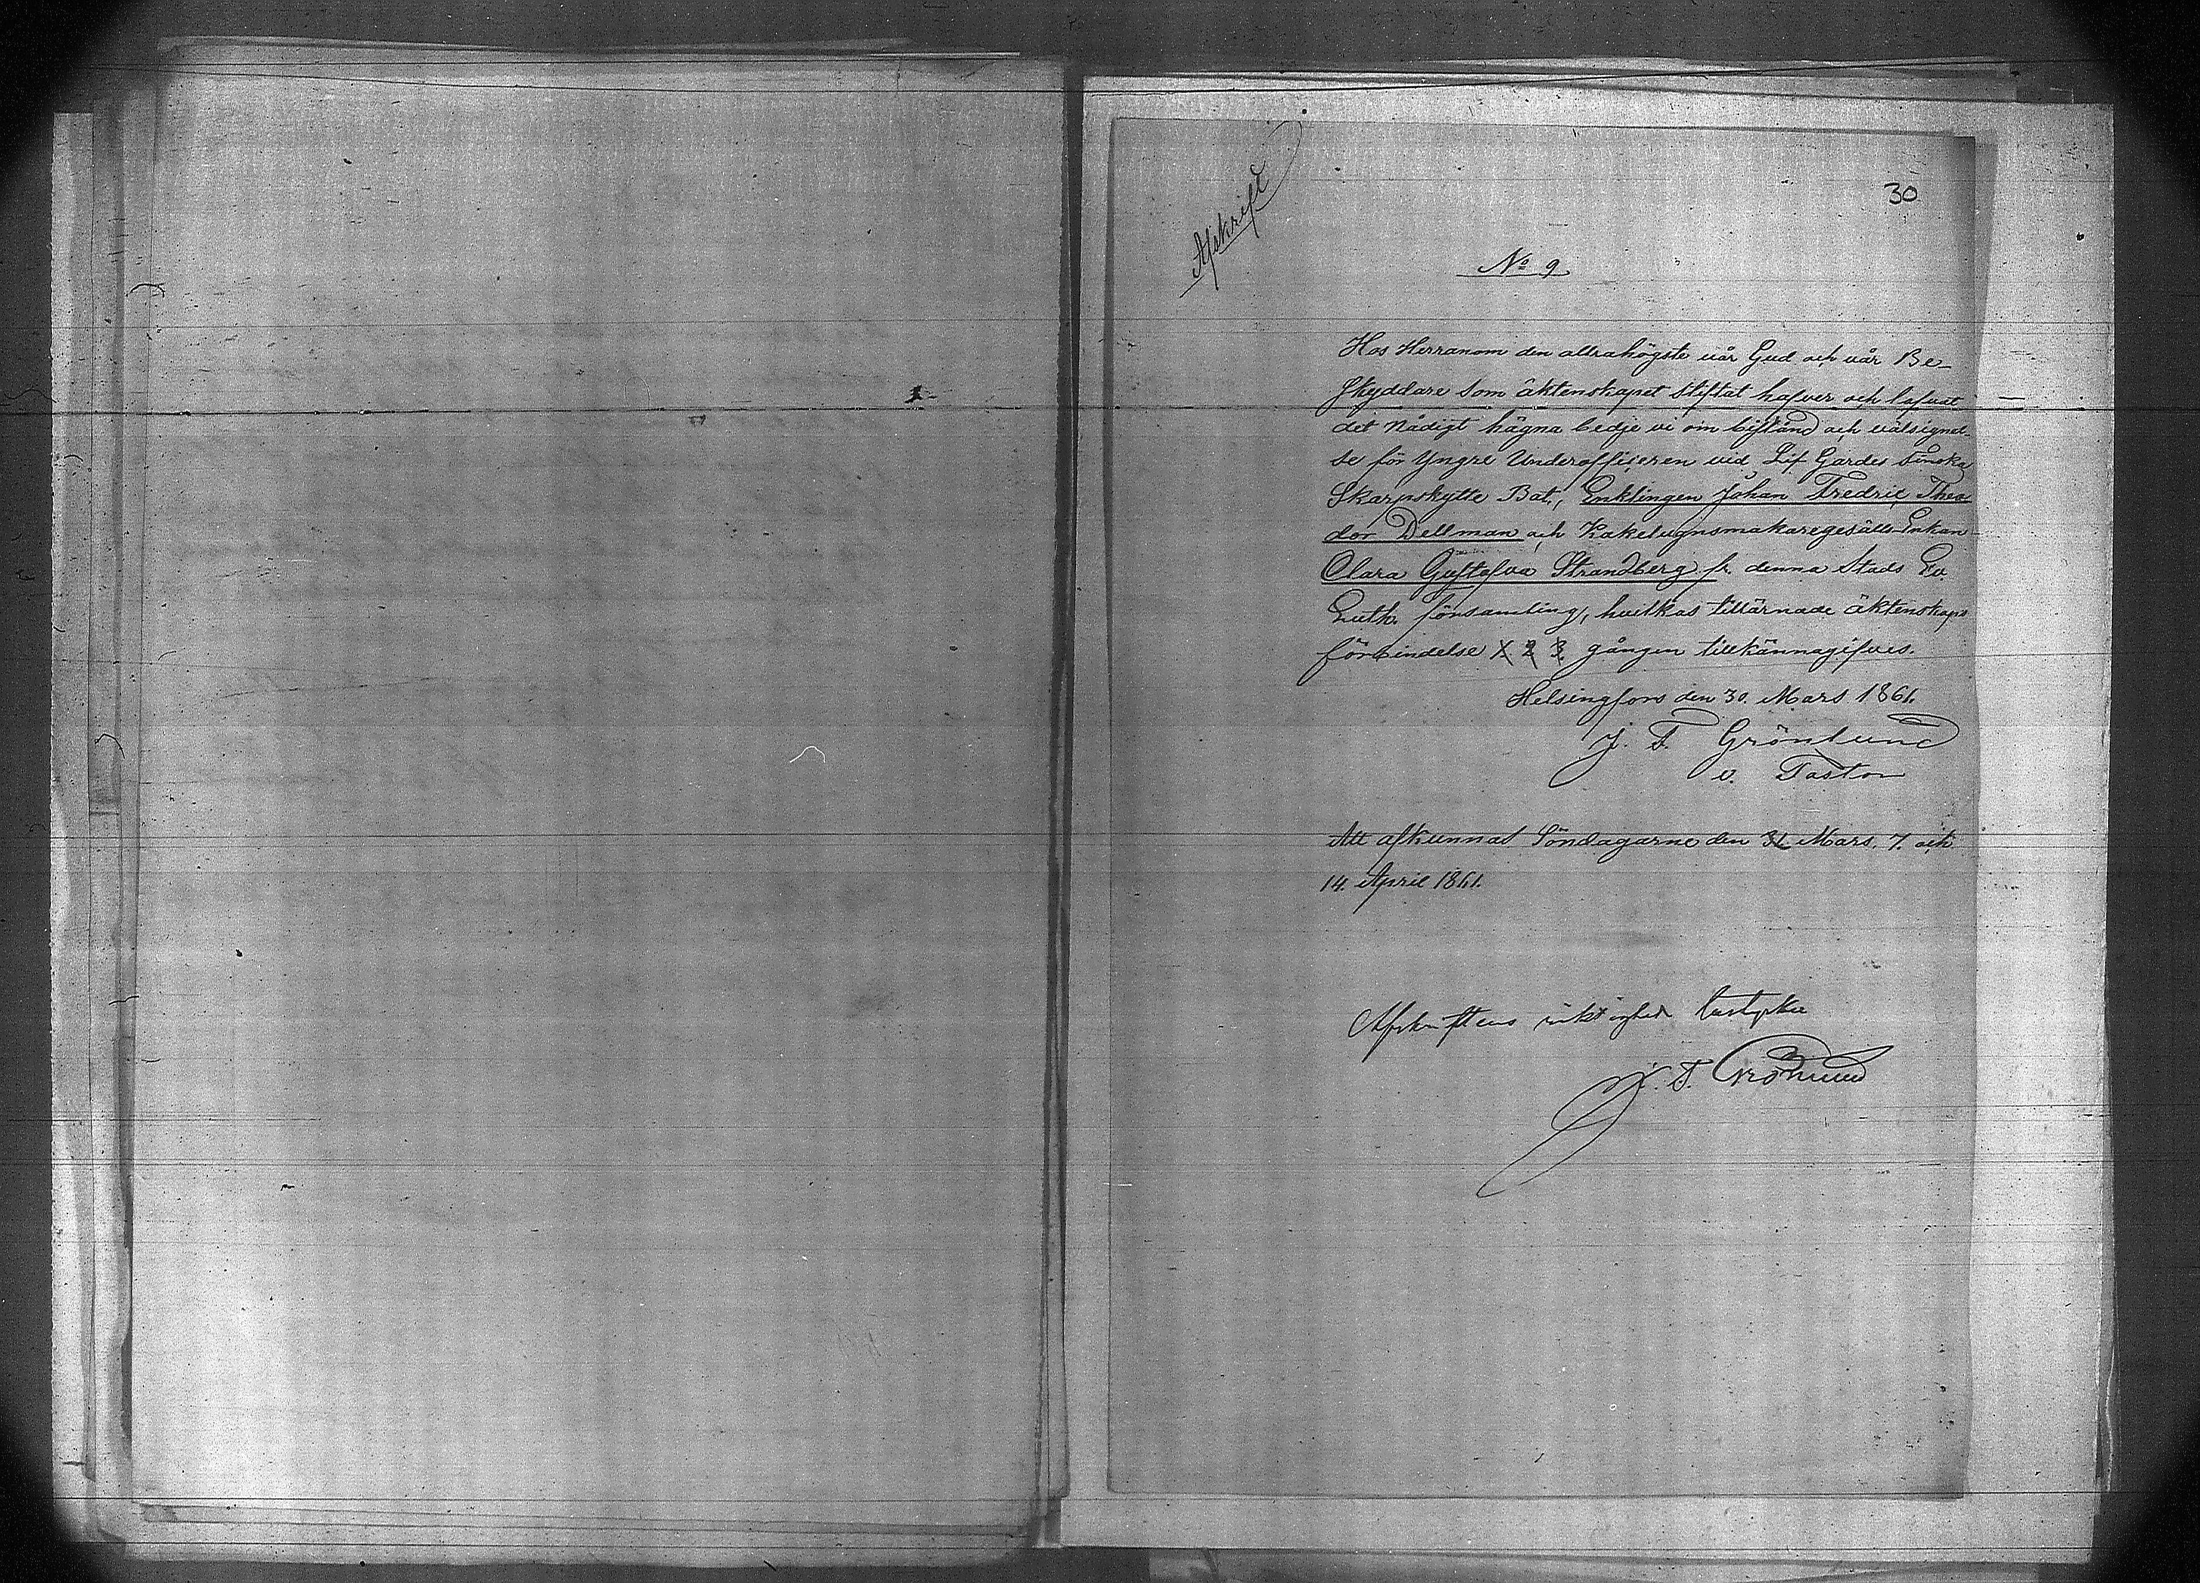 30
Afskrift
No 9
Hos Herranom den allrahögste vår Gud och vår Be-
skyddare som äktenskapet stiftat hafver och lofvat
det Nådigt hägna bedje vi om bistånd och välsignel-
se för Yngre Underofficeren vid Lif Gardes Finska
Skarpskytte Bat., Enklingen Johan Fredric Theo
dor Dellman och Kakelugnsmakaregesälls Enkan
Clara Gustafva Strandberg fr. denna Stads Ev.
Luth. församling, hvilkas tillärnade äktenskaps
förbindelse 1 2 3 gången tillkännagifves.
Helsingfors den 30. Mars 1861.
J. F. Grönlund
v. Pastor
Att afkunnas Söndagarne den 31 Mars, 7. och
14. April 1861.
Afskriftens riktighet bestyrker
J. F. Grönlund